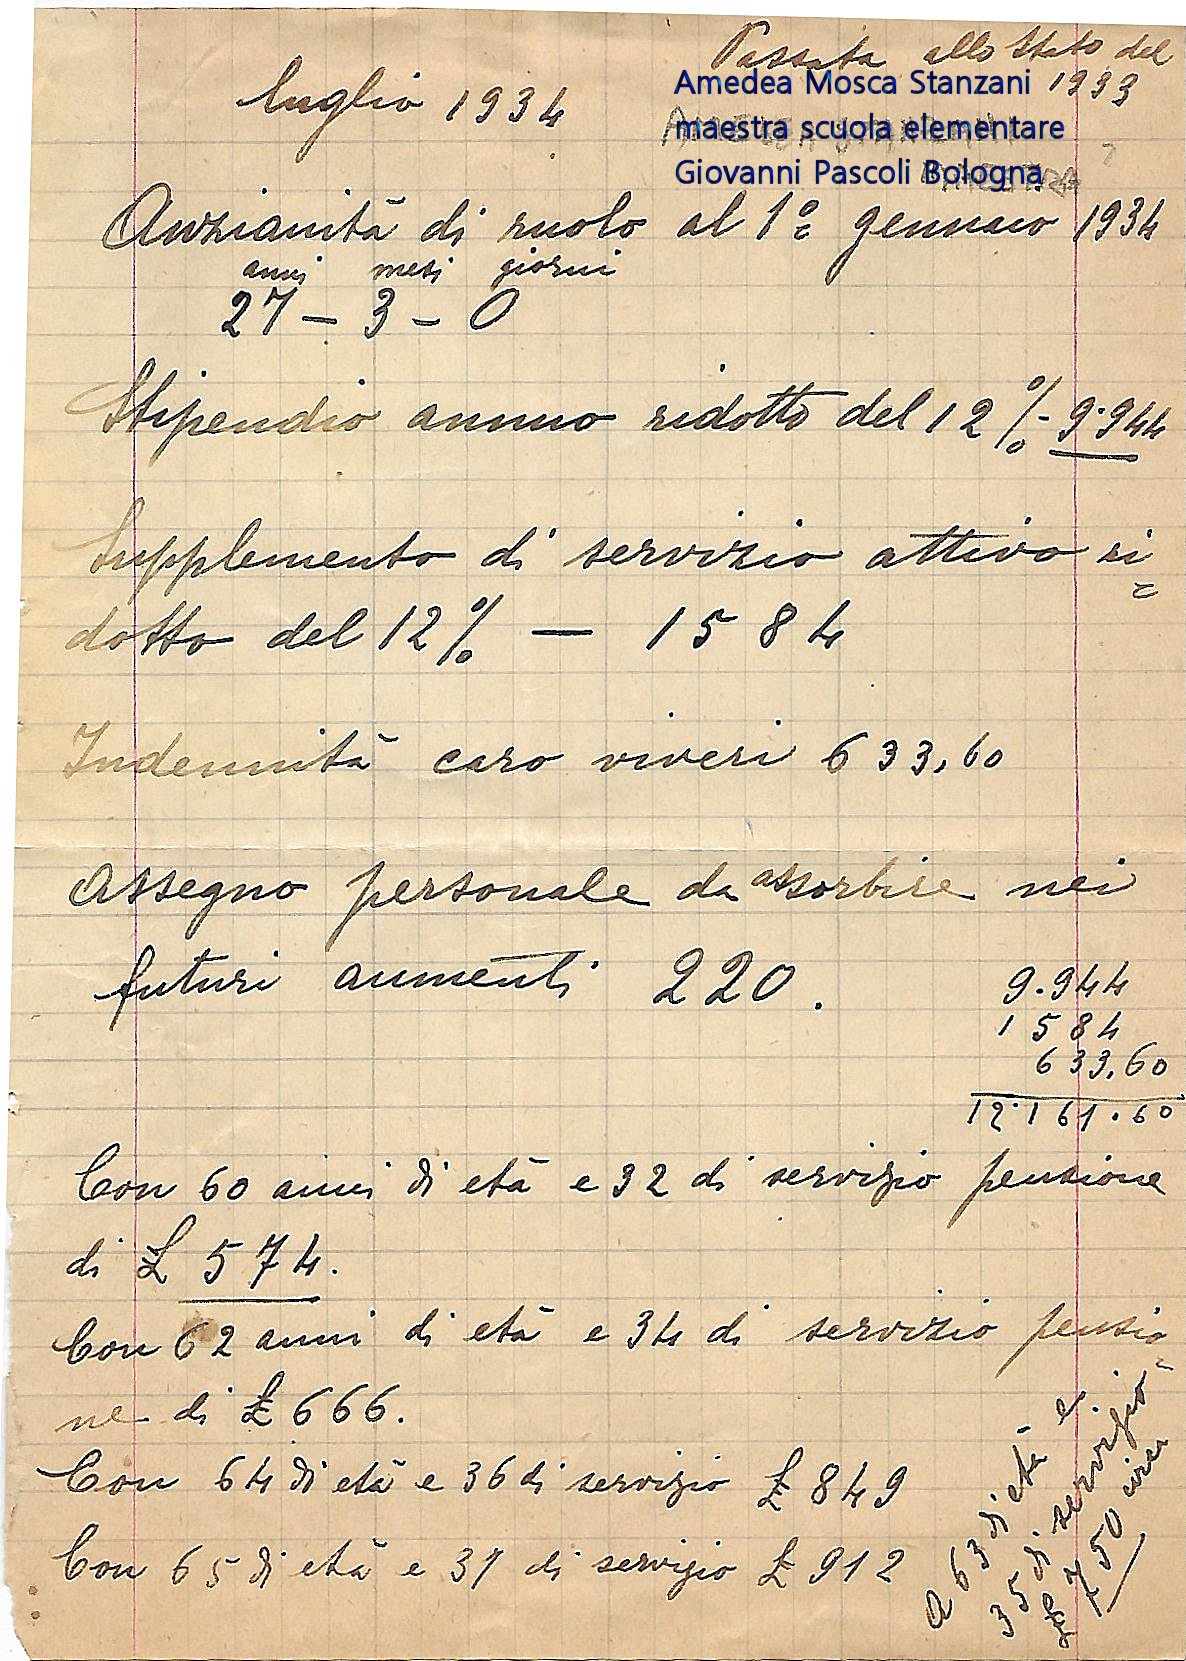 Passata allo Stato del
1933
luglio 1934
Amedea Mosca Stanzani
maestra scuola elementare
Giovanni Pascoli Bologna
Anzianità di ruolo al 1º gennaio 1934
anni mesi giorni
27 - 3 - 0
Stipendio annuo ridotto del 12% - 9.944
Supplemento di servizio attivo ri=
dotto del 12% — 1584
Indennità caro viveri 633,60
Assegno personale da assorbire nei
futuri aumenti 220.
9.944
1584
633,60
12.161.60
Con 60 anni di età e 32 di servizio pensione
di £ 574.
Con 62 anni di età e 34 di servizio pensio=
ne di £ 666.
Con 64 di età e 36 di servizio £ 849
Con 65 di età e 37 di servizio £ 912
A 63 di età e
35 di servizio
£ 750 circa